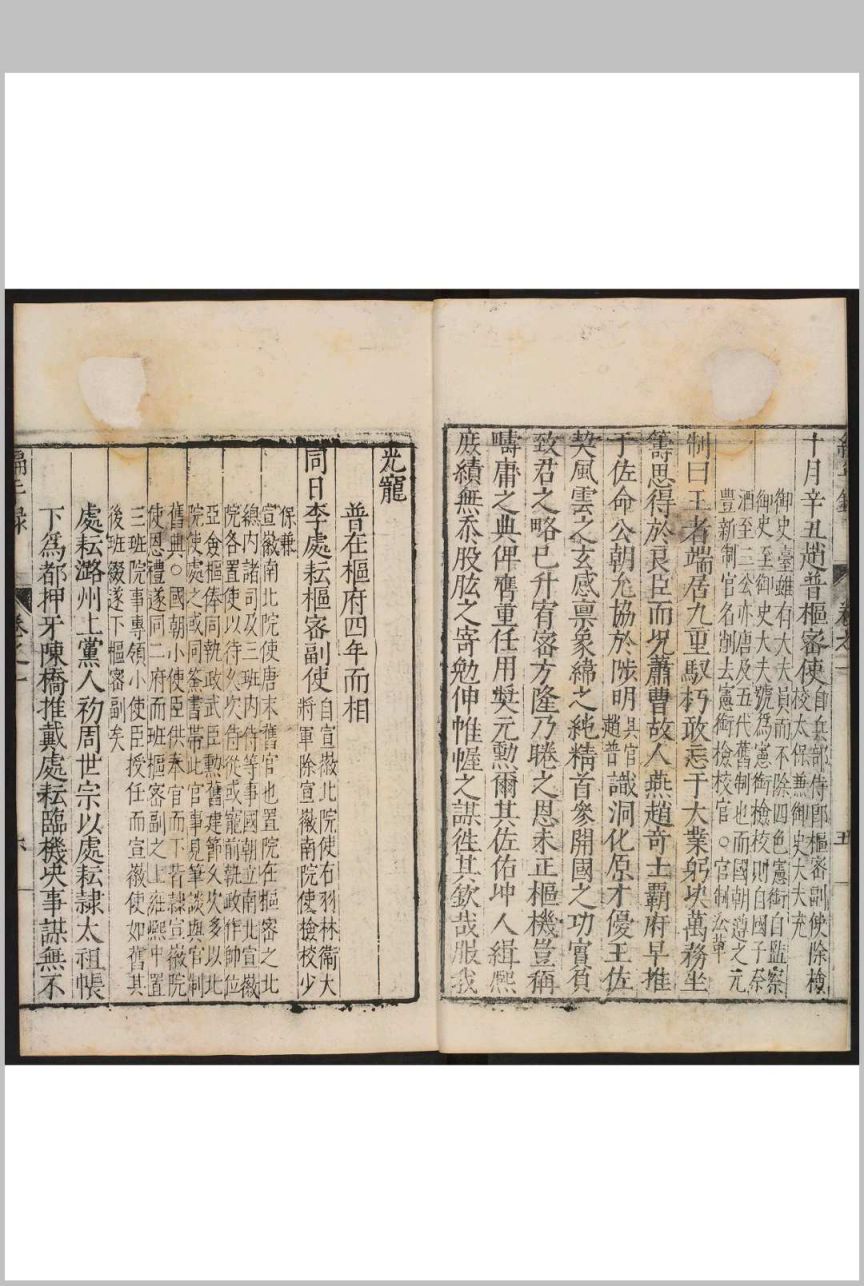 十月辛丑趙普樞密使自兵部侍郎樞密副使除檢
校太保兼御史大夫充
御史臺雖有大夫員而不除四色憲銜自監察
御史至御史大夫號爲憲銜檢校則自國子祭
酒至三公亦唐及五代舊制也而國朝遵之元
豐新制官名削去憲銜檢校官○官制沿革
制曰王者端居九重馭朽敢忘于大業躬决萬務坐
籌思得於良臣而况蕭曹故人燕趙奇士霸府早推
于佐命公朝允協於陟明具官趙普識洞化原才優王佐
契風雲之玄感禀象緯之純精首參開國之功實負
致君之略已升宥密方隆乃睠之恩未正樞機豈稱
疇庸之典俾膺重任用奬元勲爾其佐佑坤人緝熈
庶績無忝股肱之寄勉伸帷幄之謀徃其欽哉服我
光寵
普在樞府四年而相
同日李處耘樞密副使自宣徽北院使右羽林衛大
將軍除宣徽南院使檢校少
保兼
宣徽南北院使唐末舊官也置院在樞密之北
總内諸司及三班内侍等事國朝立南北宣徽
院各置使以待久次侍從或寵前執政作帥位
亞僉樞俸同執政武臣勲舊建節久次多以北
院使處之或同簽書帶此官事見筆談與官制
舊典○國朝小使臣供奉官而下皆隷宣徽院
使恩禮遂同二府而班樞密副之上雍熈中置
三班院事專領小使臣授任而宣徽使如舊其
後班綴遂下樞密副矣
處耘潞州上黨人初周世宗以處耘隷太祖帳
下爲都押牙陳橋推戴處耘臨機决事謀無不
編年錄
卷之一
六